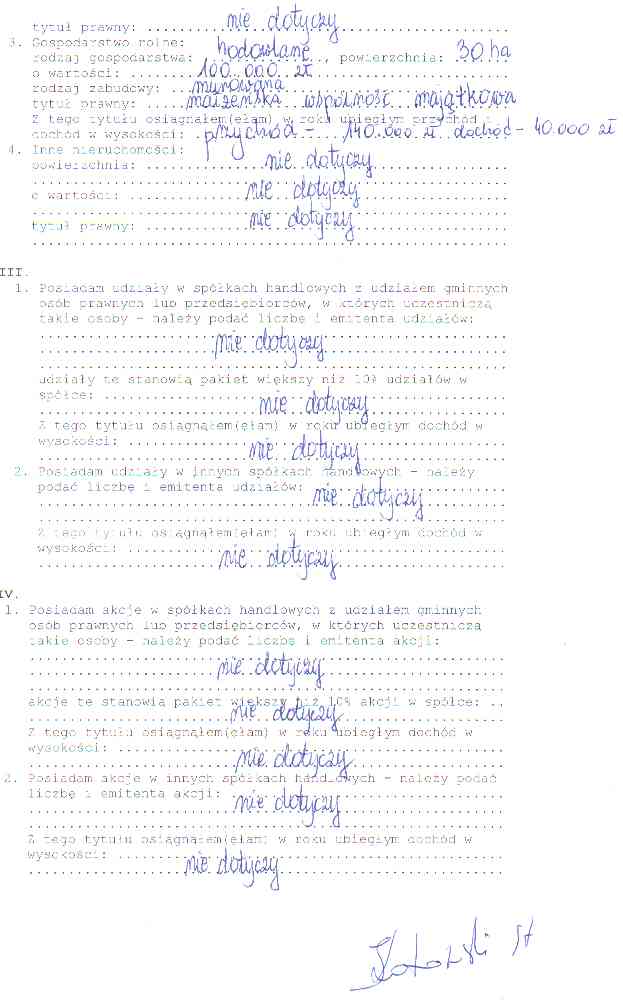 tytuł prawny: nie dotyczy
3. Gospodarstwo rolne:
rodzaj gospodarstwa: hodowlane, powierzchnia: 30 ha
o wartości: 100.000 zł
rodzaj zabudowy: murowana
tytuł prawny: małżeńska wspólność majątkowa
Z tego tytułu osiągnąłem(ęłam) w roku ubiegłym przychód i
dochód w wysokości: przychód - 140.000 zł dochód - 40.000 zł
4. Inne nieruchomości:
powierzchnia: nie dotyczy
o wartości: nie dotyczy
tytuł prawny: nie dotyczy
III.
1. Posiadam udziały w spółkach handlowych z udziałem gminnych
osób prawnych lub przedsiębiorców, w których uczestniczą
takie osoby - należy podać liczbę i emitenta udziałów:
nie dotyczy
udziały te stanowią pakiet większy niż 10% udziałów w
spółce: nie dotyczy
Z tego tytułu osiągnąłem(ęłam) w roku ubiegłym dochód w
wysokości: nie dotyczy
2. Posiadam udziały w innych spółkach handlowych - należy
podać liczbę i emitenta udziałów: nie dotyczy
Z tego tytułu osiągnąłem(ęłam) w roku ubiegłym dochód w
wysokości: nie dotyczy
IV.
1. Posiadam akcje w spółkach handlowych z udziałem gminnych
osób prawnych lub przedsiębiorców, w których uczestniczą
takie osoby - należy podać liczbę i emitenta akcji:
nie dotyczy
akcje te stanowią pakiet większy niż 10% akcji w spółce:
nie dotyczy
Z tego tytułu osiągnąłem(ęłam) w roku ubiegłym dochód w
wysokości: nie dotyczy
2. Posiadam akcje w innych spółkach handlowych - należy podać
liczbę i emitenta akcji: nie dotyczy
Z tego tytułu osiągnąłem(ęłam) w roku ubiegłym dochód w
wysokości: nie dotyczy